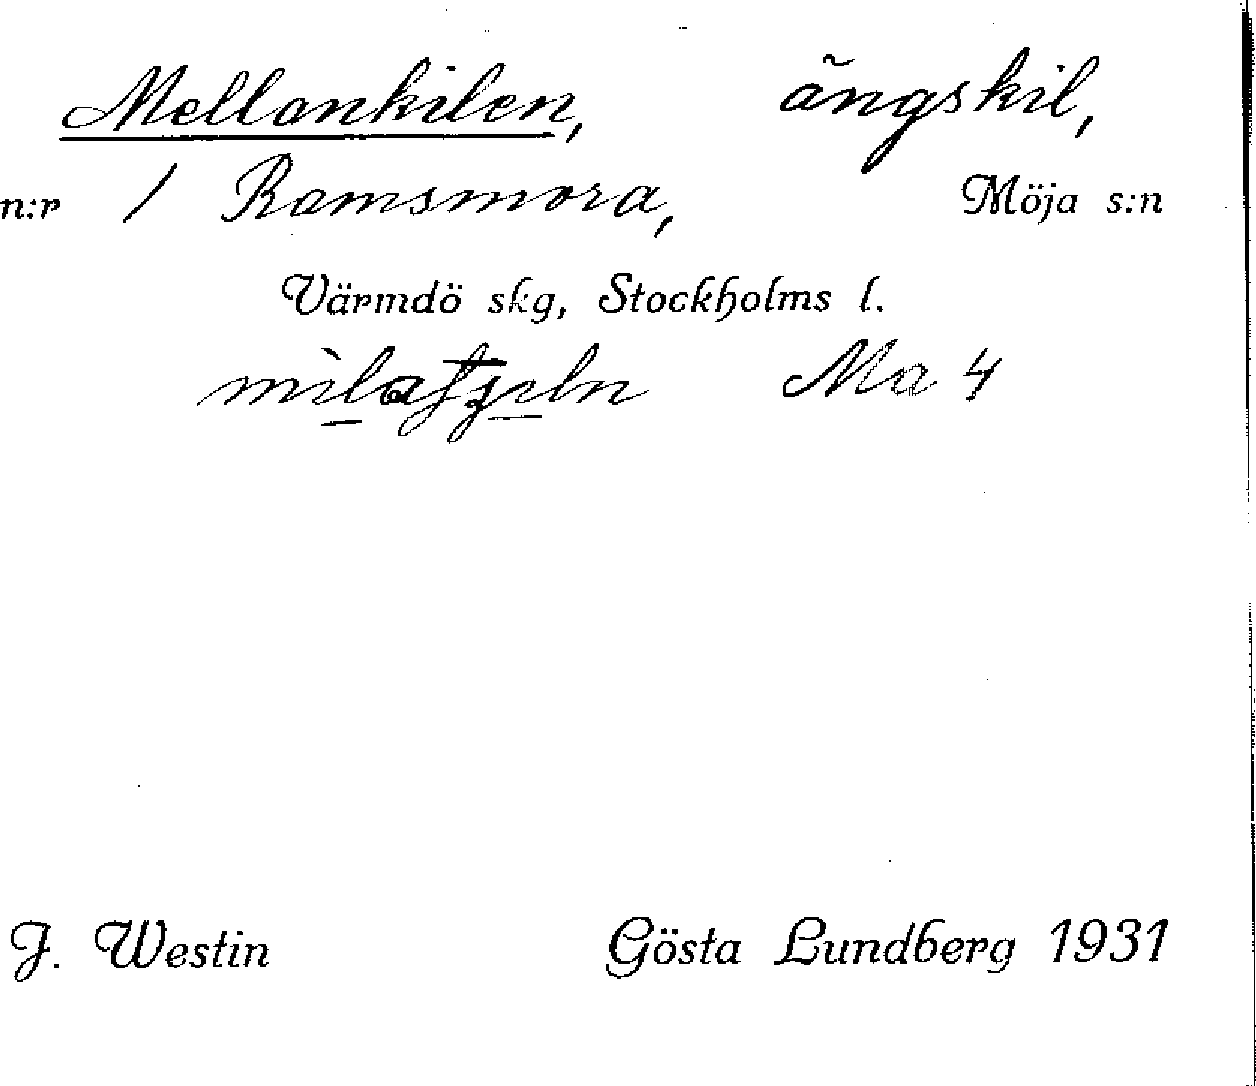 Mellankilen, ängskil,
n:r 1 Ramsmora, Möja s:n
Värmdö skg, Stockholms l.
Ma 4
J. Westin Gösta Lundberg 1931